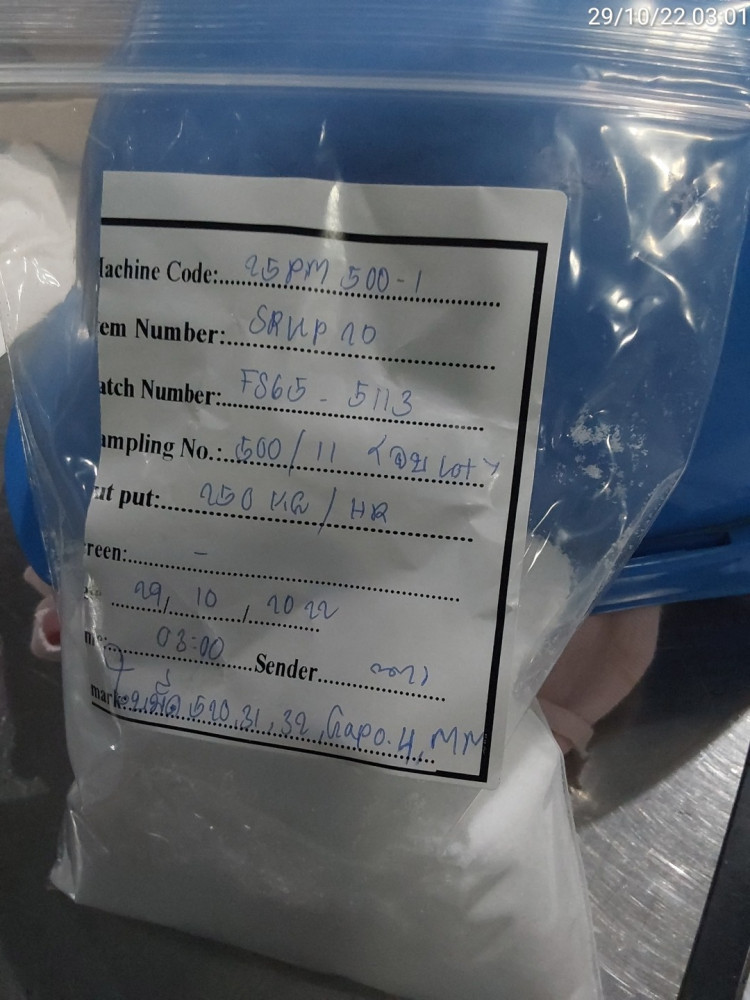 29/10/22 03:01
Machine Code: 25PM 500-1
Item Number: SRUP 20
Batch Number: FS65 - 5113
Sampling No.: 500/11 <จบ Lot>
Out put: 250 KG / HR
Screen: -
29/ 10 / 2022
03:00 Sender
mark 520, 31, 32, Gapo. 4, MM